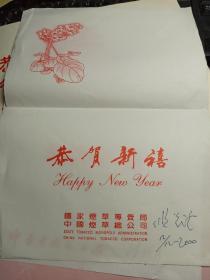 恭贺新禧
Happy New Year
國家煙草專賣局
中國煙草總公司
STATE TOBACCO MONOPOLY ADMINISTRATION
CHINA NATIONAL TOBACCO CORPORATION